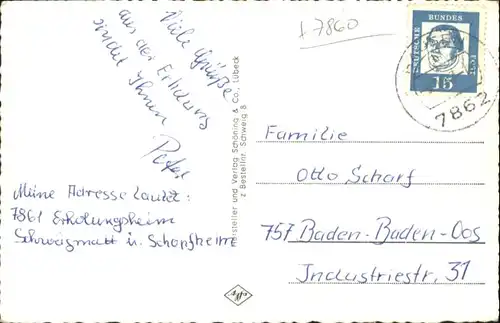 + 7860
Viele Grüße
aus der Erholung
sendet Ihnen
Peter
Meine Adresse lautet:
7861 Erholungsheim
Schweigmatt ü. Schopfheim
Hersteller und Verlag Schöning & Co., Lübeck
z Bestellnr. Schweig 8
DEUTSCHE
BUNDES
POST
15
7862
Familie
Otto Scharf
757 Baden-Baden-Oos
Industriestr. 31
Agfa